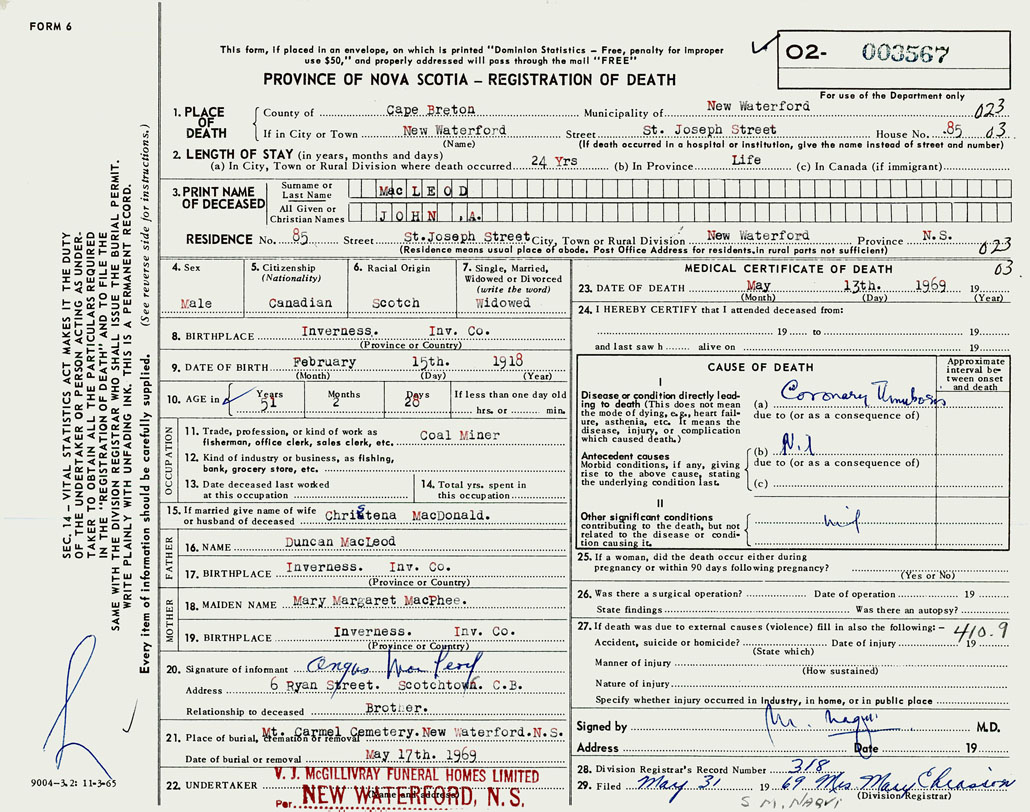 FORM 6
This form, if placed in an envelope, on which is printed "Dominion Statistics – Free, penalty for improper
use $50," and properly addressed will pass through the mail "FREE"
PROVINCE OF NOVA SCOTIA – REGISTRATION OF DEATH
O2- 003567
For use of the Department only
1. PLACE OF DEATH
County of Cape Breton Municipality of New Waterford 023
If in City or Town New Waterford Street St. Joseph Street House No. 85 03
(Name) (If death occurred in a hospital or institution, give the name instead of street and number)
2. LENGTH OF STAY (in years, months and days)
(a) In City, Town or Rural Division where death occurred 24 Yrs (b) In Province Life (c) In Canada (if immigrant)
3. PRINT NAME OF DECEASED
Surname or Last Name MacLEOD
All Given or Christian Names JOHN .A.
RESIDENCE No. 85 Street St.Joseph Street City, Town or Rural Division New Waterford Province N.S.
(Residence means usual place of abode. Post Office Address for residents in rural parts not sufficient) 023
03.
4. Sex Male
5. Citizenship (Nationality) Canadian
6. Racial Origin Scotch
7. Single, Married, Widowed or Divorced (write the word) Widowed
8. BIRTHPLACE Inverness. Inv. Co.
(Province or Country)
9. DATE OF BIRTH February 15th. 1918
(Month) (Day) (Year)
10. AGE in Years 51 Months 2 Days 28 If less than one day old
hrs. or min.
OCCUPATION
11. Trade, profession, or kind of work as fisherman, office clerk, sales clerk, etc. Coal Miner
12. Kind of industry or business, as fishing, bank, grocery store, etc.
13. Date deceased last worked at this occupation
14. Total yrs. spent in this occupation
15. If married give name of wife or husband of deceased Christena MacDonald.
FATHER
16. NAME Duncan MacLeod
17. BIRTHPLACE Inverness. Inv. Co.
(Province or Country)
MOTHER
18. MAIDEN NAME Mary Margaret MacPhee.
19. BIRTHPLACE Inverness. Inv. Co.
(Province or Country)
20. Signature of informant Angus MacLeod
Address 6 Ryan Street. Scotchtown. C.B.
Relationship to deceased Brother.
21. Place of burial, cremation or removal Mt. Carmel Cemetery.New Waterford.N.S.
Date of burial or removal May 17th. 1969
22. UNDERTAKER V. J. McGILLIVRAY FUNERAL HOMES LIMITED
(Name and address)
Per NEW WATERFORD, N. S.
MEDICAL CERTIFICATE OF DEATH
23. DATE OF DEATH May 13th. 1969 19
(Month) (Day) (Year)
24. I HEREBY CERTIFY that I attended deceased from:
19 to 19
and last saw h alive on 19
CAUSE OF DEATH
Approximate interval between onset and death
I
Disease or condition directly leading to death (This does not mean the mode of dying, e.g., heart failure, asthenia, etc. It means the disease, injury, or complication which caused death.)
(a) Coronary Thrombosis
due to (or as a consequence of)
Antecedent causes
Morbid conditions, if any, giving rise to the above cause, stating the underlying condition last.
(b) Nil
due to (or as a consequence of)
(c)
II
Other significant conditions contributing to the death, but not related to the disease or condition causing it.
nil
25. If a woman, did the death occur either during pregnancy or within 90 days following pregnancy?
(Yes or No)
26. Was there a surgical operation? Date of operation 19
State findings Was there an autopsy?
27. If death was due to external causes (violence) fill in also the following:– 410.9
Accident, suicide or homicide? Date of injury 19
(State which)
Manner of injury
(How sustained)
Nature of injury
Specify whether injury occurred in Industry, in home, or in public place
Signed by M. Naqui M.D.
Address Date 19
28. Division Registrar's Record Number 318
29. Filed May 31 19 69 Mrs Mary Chiasson
(Division Registrar)
S M. NAQVI
SEC. 14 – VITAL STATISTICS ACT MAKES IT THE DUTY
OF THE UNDERTAKER OR PERSON ACTING AS UNDER-
TAKER TO OBTAIN ALL THE PARTICULARS REQUIRED
IN THE "REGISTRATION OF DEATH" AND TO FILE THE
SAME WITH THE DIVISION REGISTRAR WHO SHALL ISSUE THE BURIAL PERMIT.
WRITE PLAINLY WITH UNFADING INK. THIS IS A PERMANENT RECORD.
Every item of information should be carefully supplied. (See reverse side for instructions.)
9004–3.2: 11-3-65